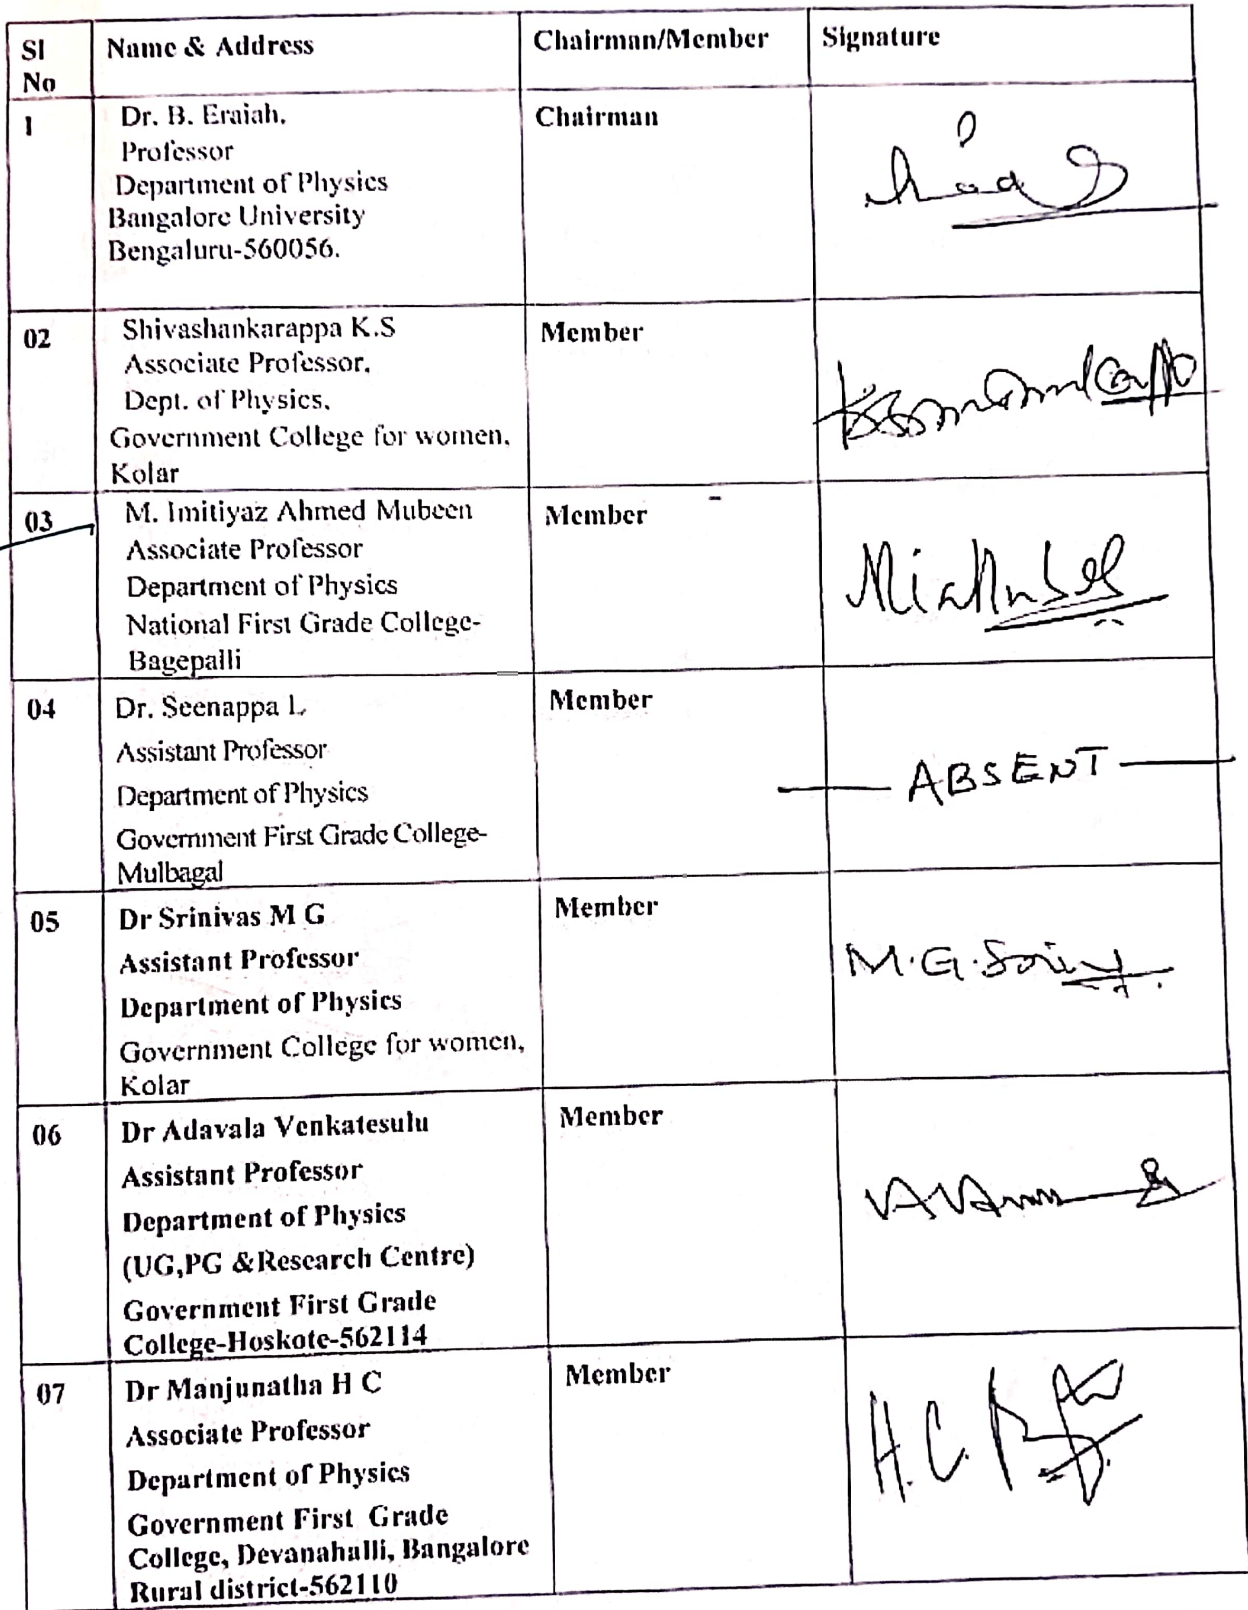 Sl No
Name & Address
Chairman/Member
Signature
1
Dr. B. Eraiah,
Professor
Department of Physics
Bangalore University
Bengaluru-560056.
Chairman
02
Shivashankarappa K.S
Associate Professor,
Dept. of Physics,
Government College for women,
Kolar
Member
03
M. Imitiyaz Ahmed Mubeen
Associate Professor
Department of Physics
National First Grade College-
Bagepalli
Member
04
Dr. Seenappa L
Assistant Professor
Department of Physics
Government First Grade College-
Mulbagal
Member
ABSENT
05
Dr Srinivas M G
Assistant Professor
Department of Physics
Government College for women,
Kolar
Member
M.G.
06
Dr Adavala Venkatesulu
Assistant Professor
Department of Physics
(UG,PG &Research Centre)
Government First Grade
College-Hoskote-562114
Member
07
Dr Manjunatha H C
Associate Professor
Department of Physics
Government First Grade
College, Devanahalli, Bangalore
Rural district-562110
Member
H.C.